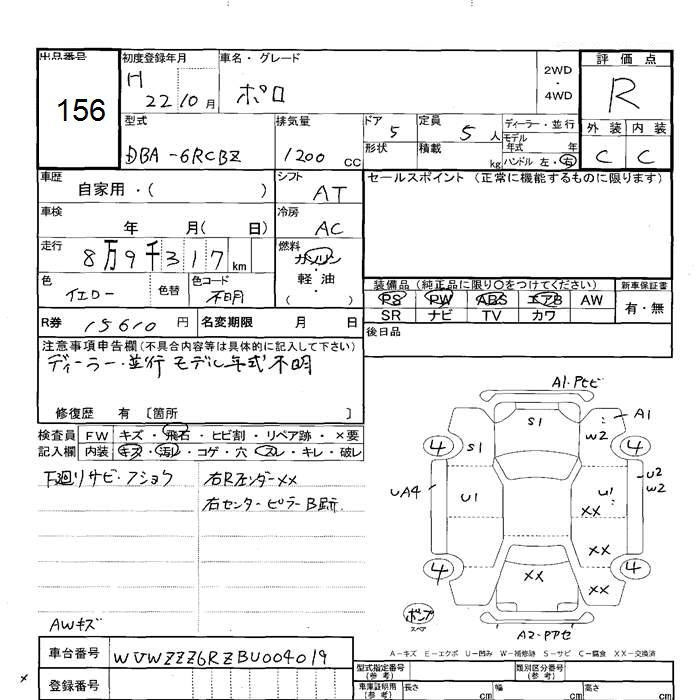 出品番号
156
初度登録年月
H 22 10 月
車名・グレード
ポロ
2WD
・
4WD
評価点
R
外装 内装
C C
型式
DBA-6RCBZ
排気量
1200 CC
ドア
5
定員
5 人
形状
積載
kg
ディーラー・並行
モデル
年式 年
ハンドル 左・右
車歴
自家用・( )
シフト
AT
車検
年 月( 日)
冷房
AC
走行
8万9千317 km
燃料
ガソリン
・
軽油
( )
色
イエロー
色替
色コード
不明
R券 15610 円
名変期限 月 日
セールスポイント (正常に機能するものに限ります)
装備品 (純正品に限り○をつけてください)
PS PW ABS エアB AW
SR ナビ TV カワ
新車保証書
有・無
後日品
注意事項申告欄(不具合内容等は具体的に記入して下さい)
ディーラー・並行 モデル年式不明
修復歴 有 〔箇所 〕
検査員
記入欄
FW キズ・飛石・ヒビ割・リペア跡・×要
内装 キズ・汚れ・コゲ・穴・スレ・キレ・破レ
下廻りサビ・フショク
右Rフェンダーxx
右センターピラーB跡
AWキズ
A1・Pセビ
A1
S1
W2
4
S1
4
U2
W2
UA4
U1
U1
xx
xx
4
xx
xx
4
ポンプ
スペア
A2-PPセ
A-キズ E-エクボ U-凹み W-補修跡 S-サビ C-腐食 XX-交換済
車台番号
WVWZZZ6RZBU004019
登録番号
型式指定番号
(参考)
類別区分番号
(参考)
車庫証明用
(参考)
長さ cm
幅 cm
高さ cm